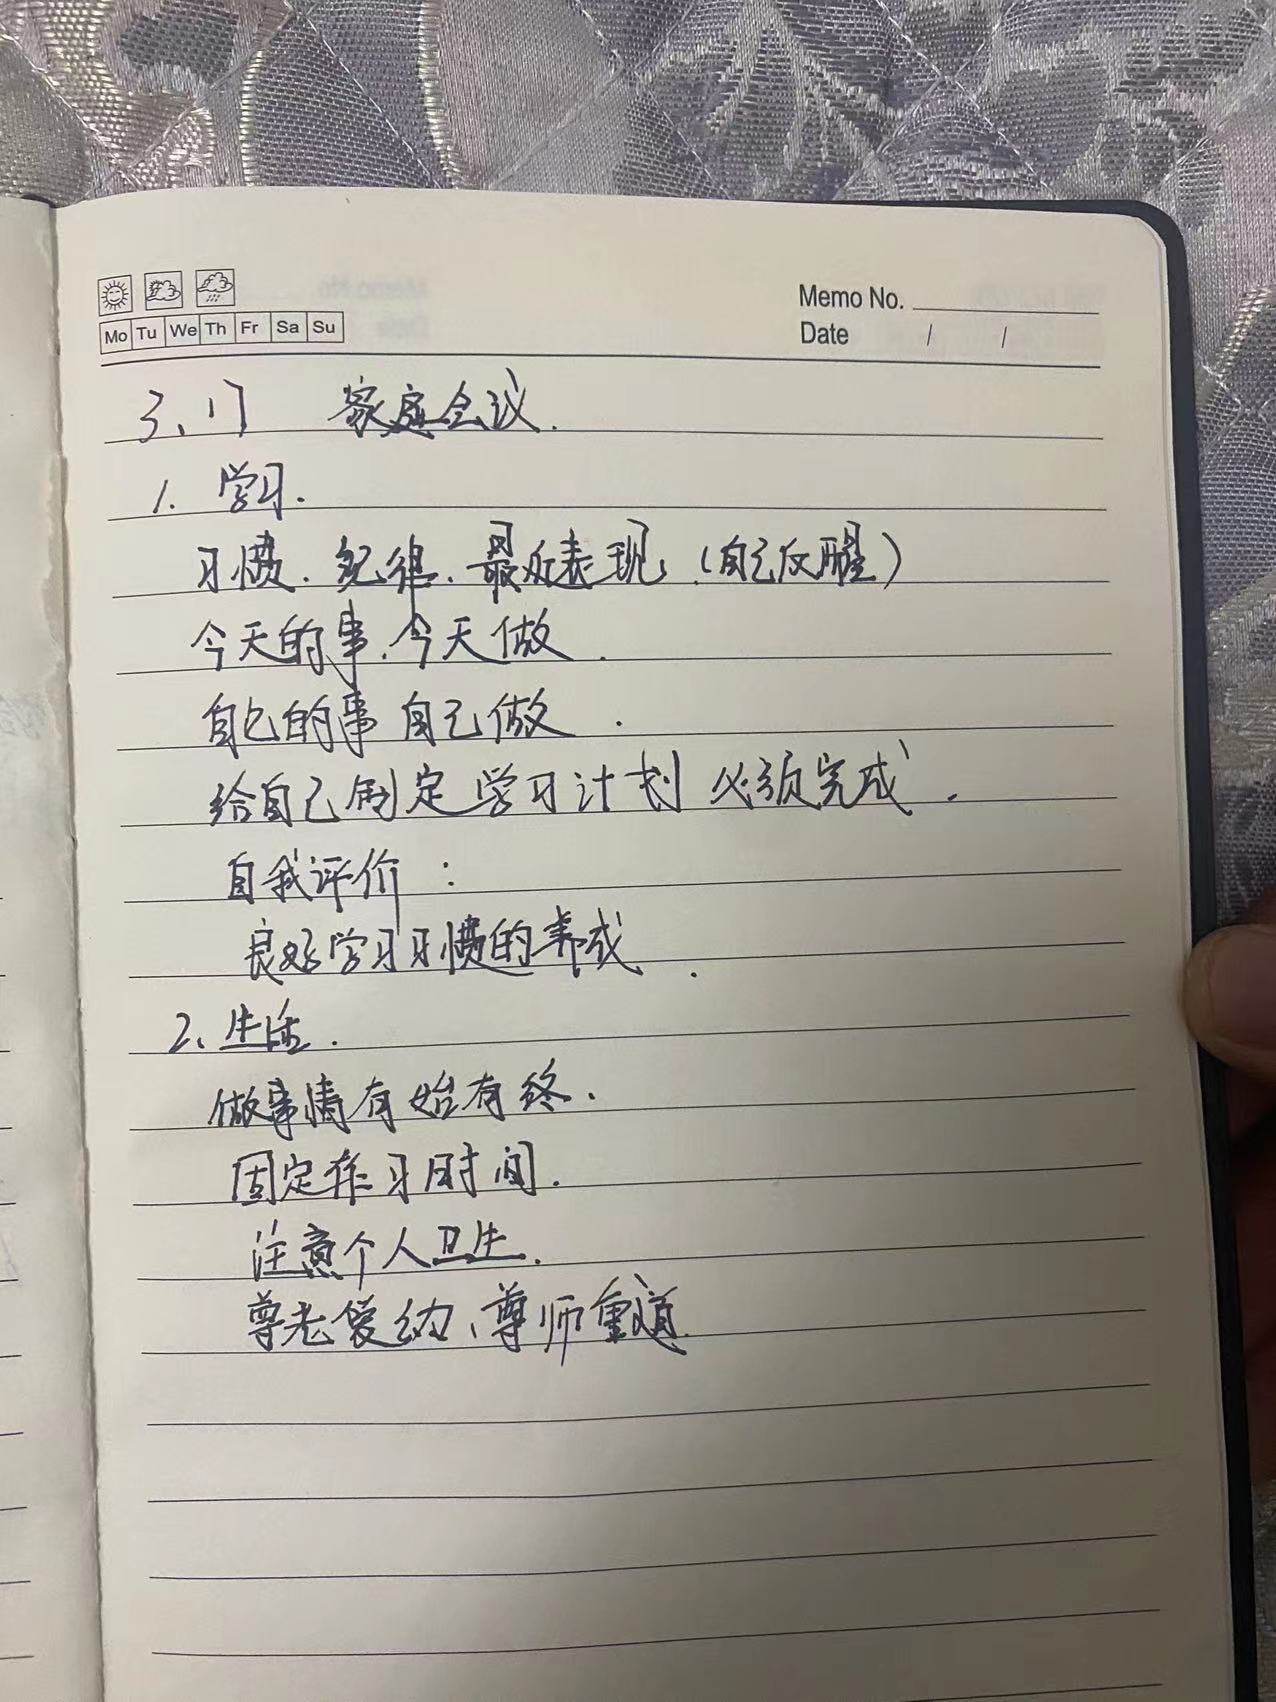 Memo No.
Mo Tu We Th Fr Sa Su
Date / /
3、17 家庭会议.
1. 学习.
习惯. 纪律. 最近表现, (自己反醒)
今天的事.今天做.
自己的事 自己做.
给自己制定学习计划 必须完成.
自我评价:
良好学习习惯的养成.
2、生活.
做事情有始有终.
固定作习时间.
注意个人卫生.
尊老爱幼、尊师重道.